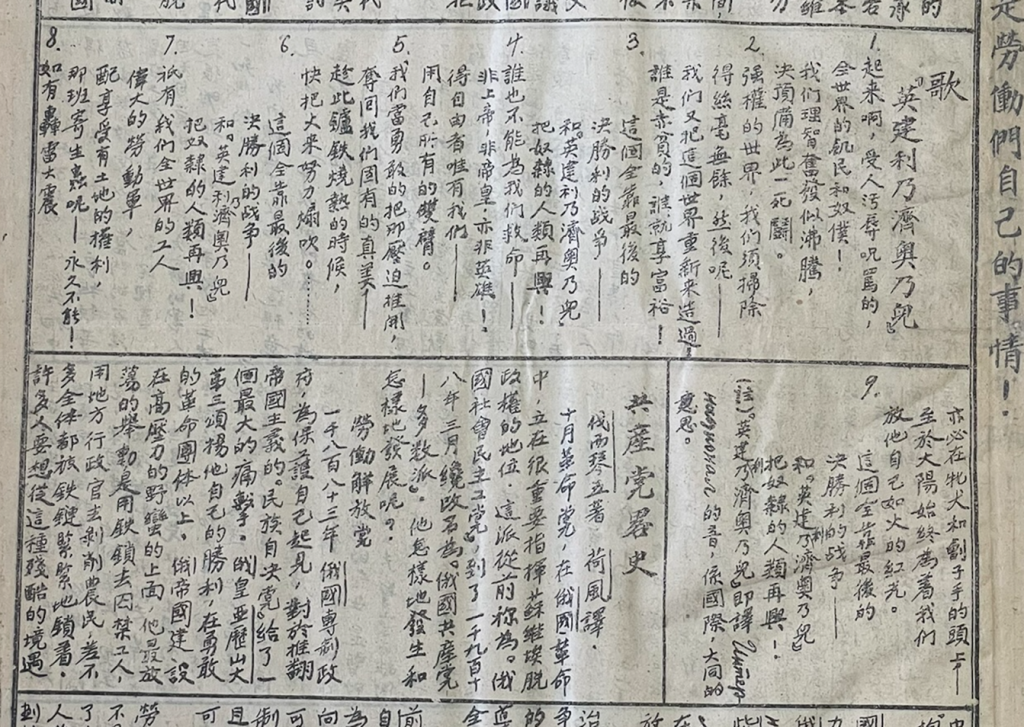 是勞働們自己的事情！
歌
『英建利乃濟奧乃兒』
1. 起来啊，受人污辱咒罵的，
全世界的飢民和奴僕！
我們理智奮發似沸騰，
决預備為此一死鬪。
2. 强權的世界，我們須掃除
得絲毫無餘，然後呢——
我們又把這個世界重新来造過！
誰是赤貧的，誰就享富裕！
3. 這個全靠最後的
决勝利的战爭——
和『英建利乃濟奧乃兒』
把奴隸的人類再興！
4. 誰也不能為我們救命——
非上帝，非帝皇，亦非英雄！
得自由者惟有我們——
用自己所有的雙臂。
5. 我們當勇敢的把那壓迫推開，
奪回我們固有的真美，
趁此鑪鉄燒熱的時候，
快把火来努力煽吹。
6. 這個全靠最後的
决勝利的战爭——
和『英建利乃濟奧乃兒』
把奴隸的人類再興！
7. 祇有我們全世界的工人
偉大的勞動軍，
配享受有土地的權利，
那班寄生蟲呢——永久不能！
8. 如有轟雷大震
亦必在牝犬和劊子手的頭上——
至於太陽始終為着我們
放他自己如火的紅光。
9. 這個全靠最後的
决勝利的战爭——
和『英建利乃濟奧乃兒』
把奴隸的人類再興！
(註)『英建利乃濟奧乃兒』即譯 Интер-
национал 的音，係國際，大同的
意思。
共産党畧史
伐西琴五著 荷風譯
十月革命党，在俄國革命
中，立在很重要指揮蘇維埃脱
政權的地位，這派從前祢為『俄
國社會民主工党』到了一千九百十
八年三月纔改名為『俄國共産党
——多数派』。他怎樣地發生和
怎樣地發展呢？
勞働解放党
一千八百八十三年 俄國專制政
府，為保護自己起見，對於推翻
帝國主義的『民族自决党』給了一
個最大的痛擊。俄皇亞歷山大
第三頌揚他自己的勝利，在勇敢
的革命團体以上。俄帝國建設
在高壓力的野蠻的上面，他最放
蕩的舉動是用鉄鎖去囚禁工人，
用地方行政官去剥削農民，差不
多全体都被鉄鏈緊緊地鎖着。
許多人要想從這種殘酷的境遇